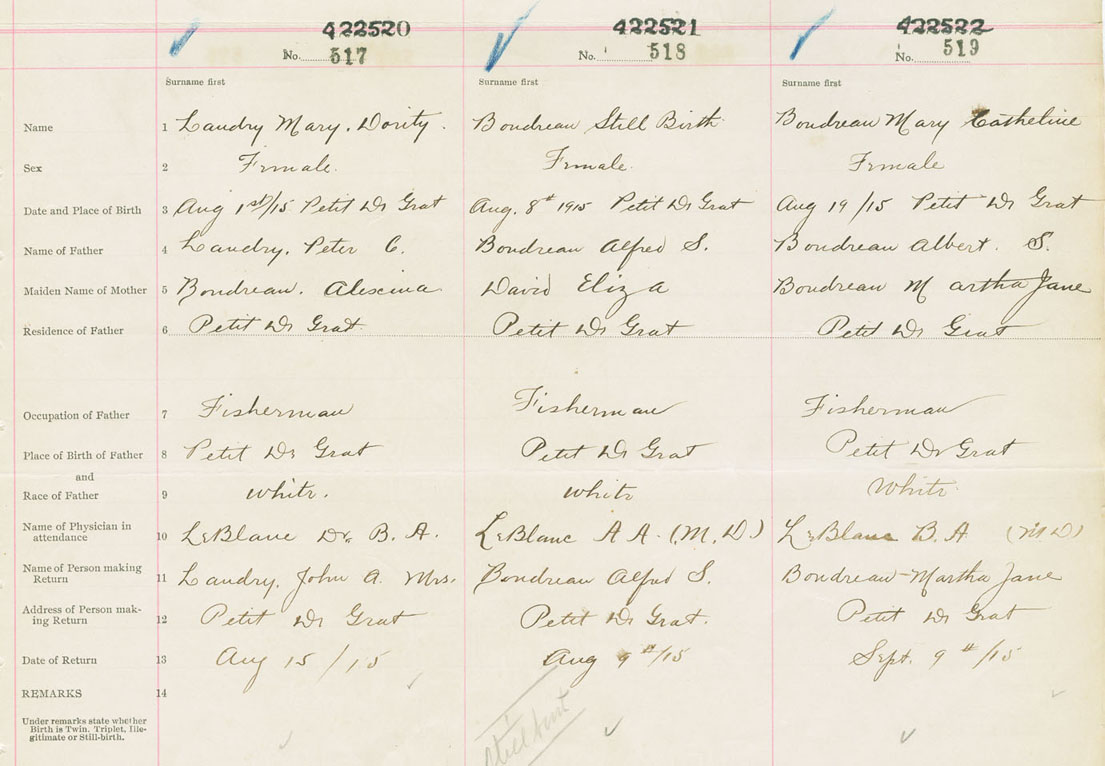 422520 422521 422522
No. 517 No. 518 No. 519
Surname first Surname first Surname first
Name 1 Landry Mary. Dority. Boudreau Still Birth Boudreau Mary Catheline
Sex 2 Female. Female. Female
Date and Place of Birth 3 Aug 1st/15 Petit De Grat Aug. 8th 1915 Petit De Grat Aug 19/15 Petit De Grat
Name of Father 4 Landry, Peter C. Boudreau Alfred S. Boudreau Albert. S.
Maiden Name of Mother 5 Boudreau. Alexina David Eliza Boudreau Martha Jane
Residence of Father 6 Petit De Grat Petit De Grat Petit De Grat
Occupation of Father 7 Fisherman Fisherman Fisherman
Place of Birth of Father 8 Petit De Grat Petit De Grat Petit De Grat
and
Race of Father 9 White. White White
Name of Physician in
attendance 10 LeBlanc Dr. B. A. LeBlanc A A. (M. D) LeBlanc B. A (M D)
Name of Person making
Return 11 Landry, John A. Mrs. Boudreau Alfred S. Boudreau-Martha Jane
Address of Person mak-
ing Return 12 Petit De Grat Petit De Grat. Petit De Grat
Date of Return 13 Aug 15/15 Aug 9th/15 Sept. 9th/15
REMARKS 14
Under remarks state whether
Birth is Twin. Triplet, Ille-
gitimate or Still-birth.
Still birth